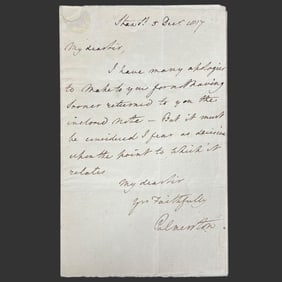 Stan St. 5 Decr 1817
My dear Sir,
I have many apologies
to make to you for not having
sooner returned to you the
inclosed Note – But it must
be considered I fear as decisive
upon the point to which it
relates
My dear Sir
Yrs Faithfully
Palmerston